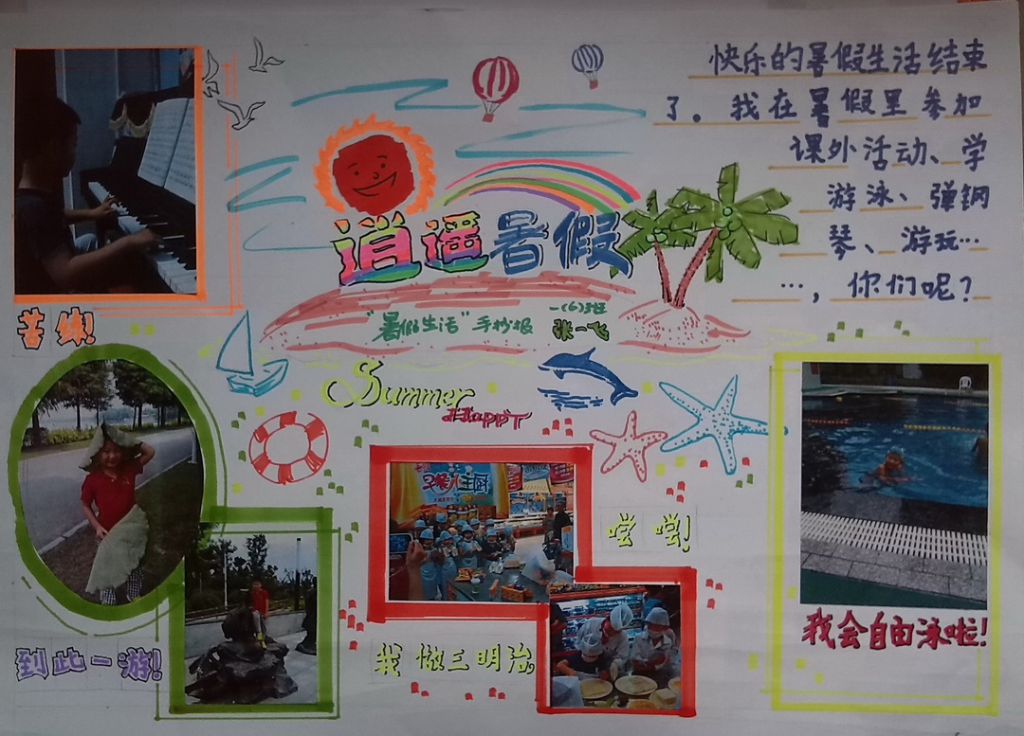 快乐的暑假生活结束
了。我在暑假里参加
课外活动、学
游泳、弹钢
琴、游玩…
…,你们呢?
逍遥暑假
一(6)班
"暑假生活"手抄报
张一飞
苦练!
Summer
HAPPY
嚐嚐!
到此一游!
我做三明治
我会自由泳啦!